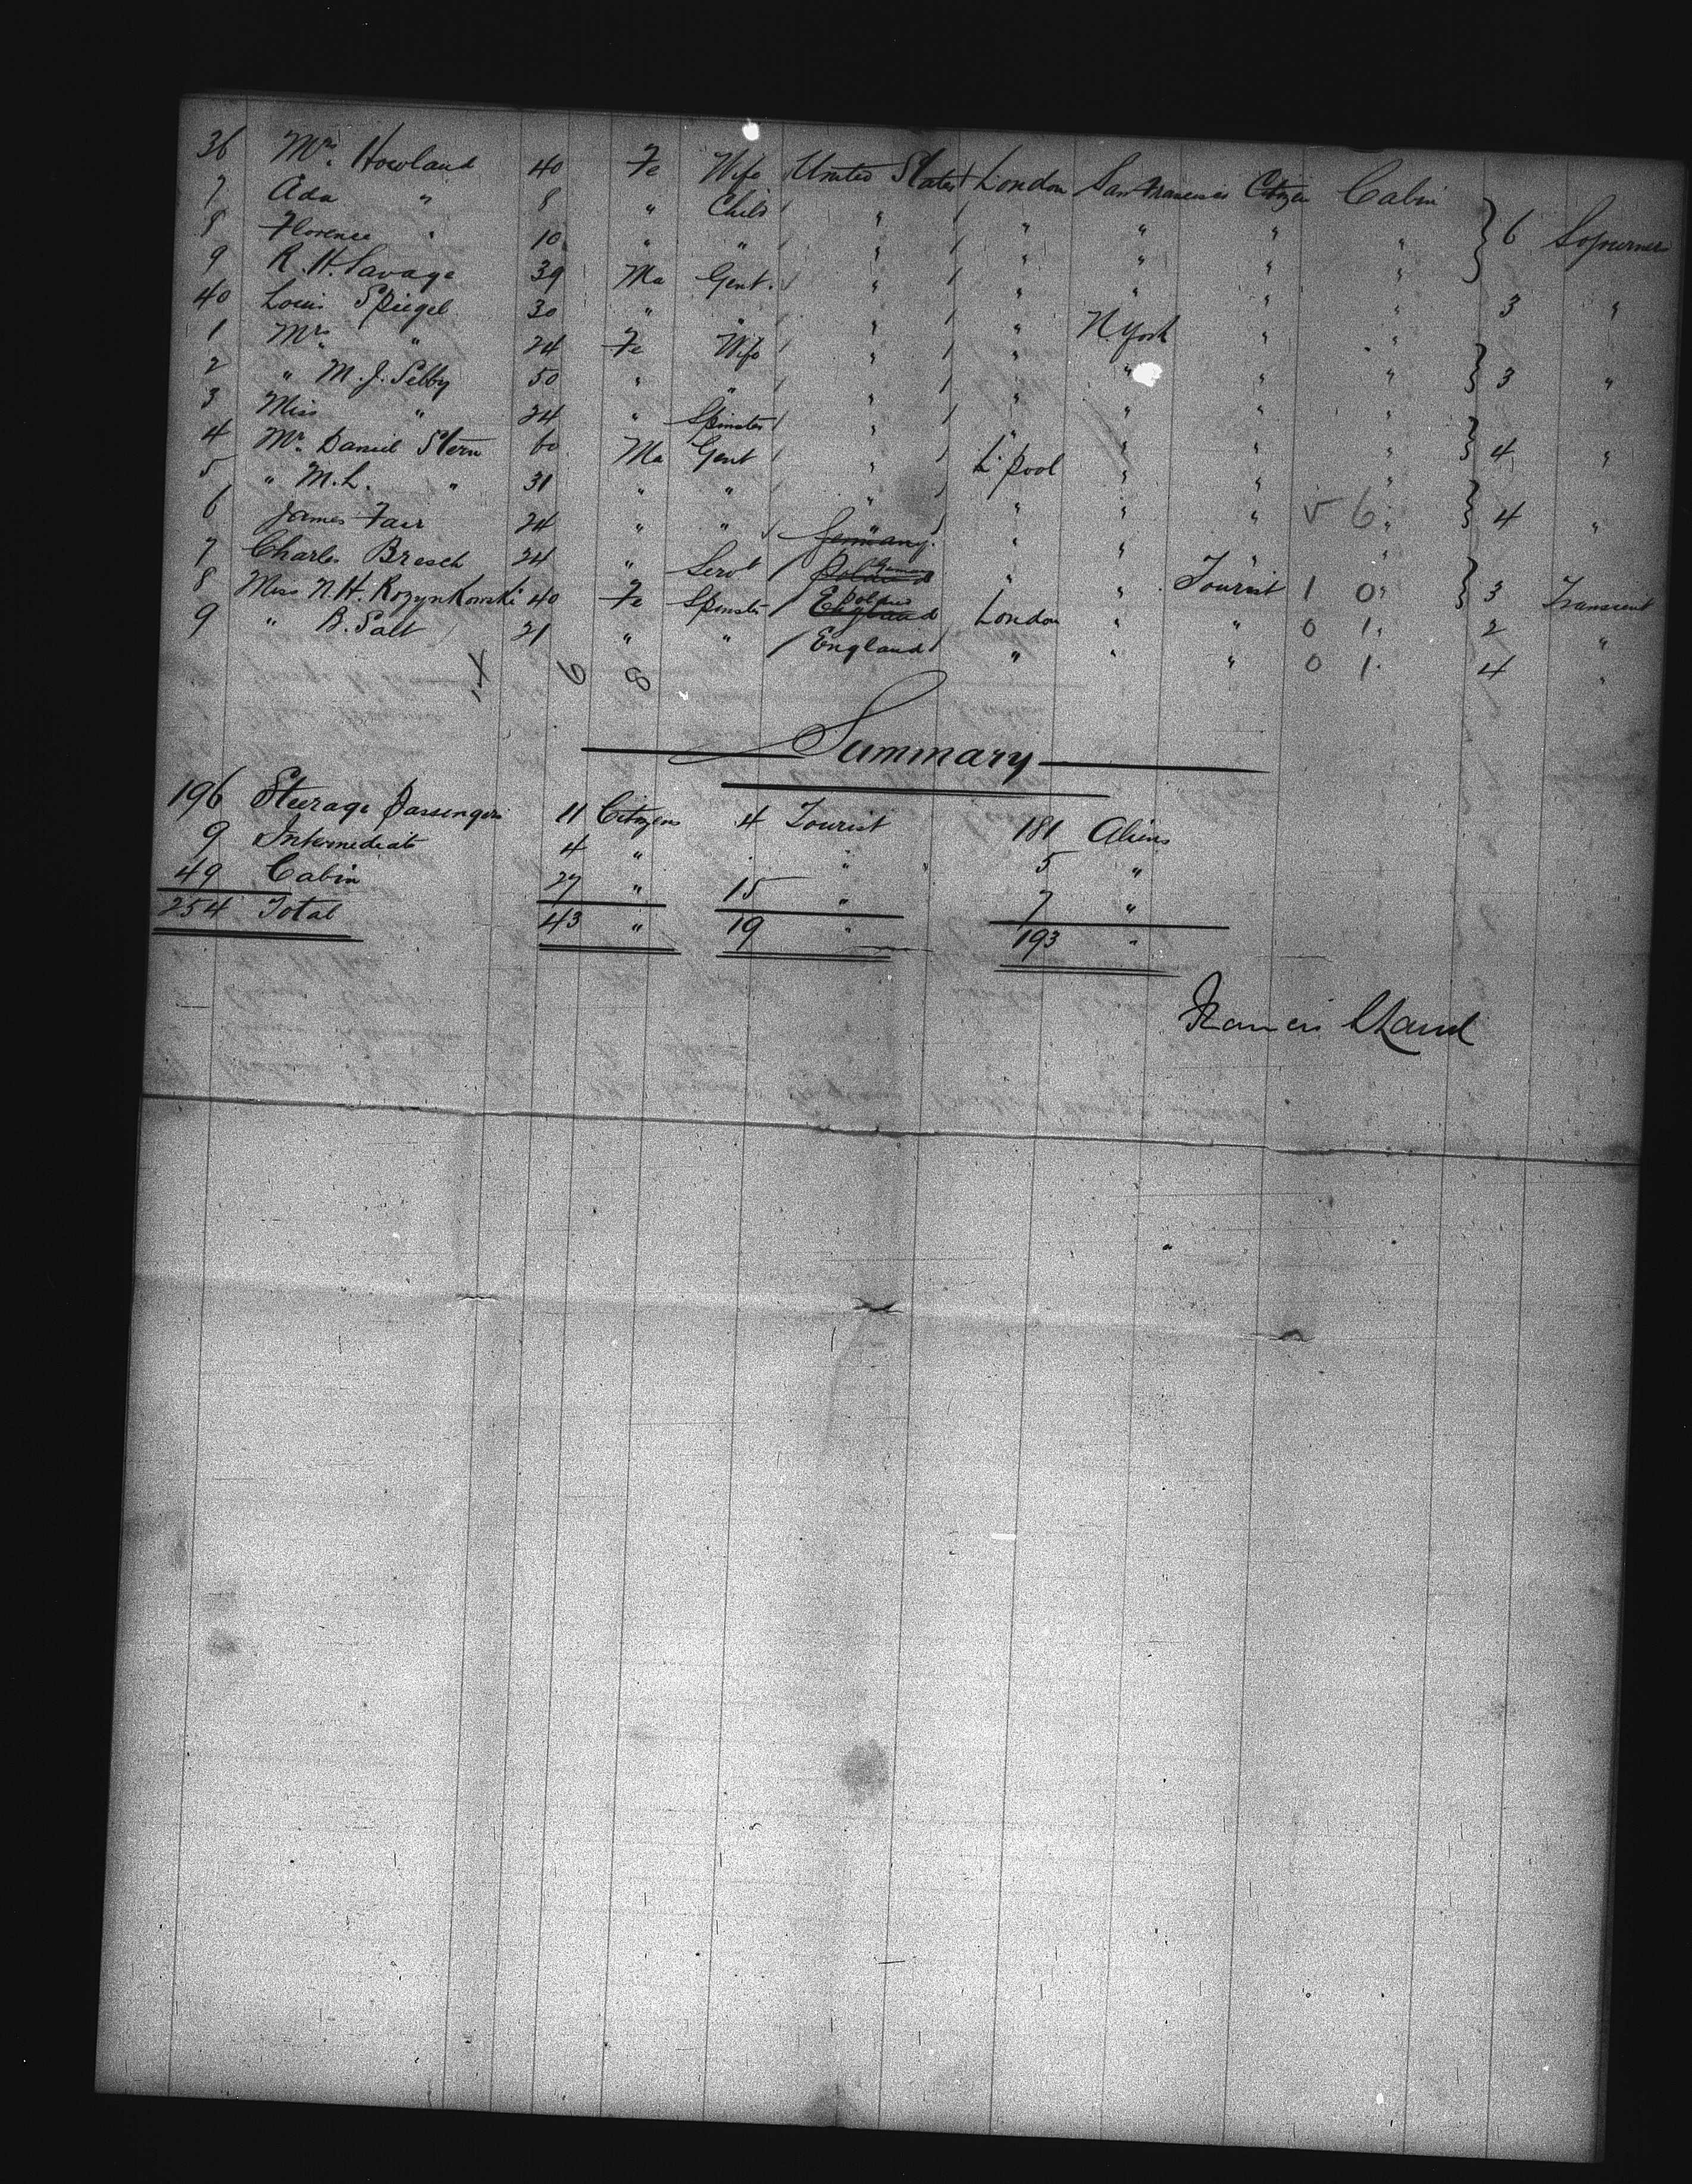 36 Mrs. Howland 40 Fe Wife United States London San Francisco Citizen Cabin } 6 Sojourner
7 Ada " 8 " Child " " " " "
8 Florence " 10 " " " " " " "
9 R. H. Savage 39 Ma Gent. " " " " " 3 "
40 Louis Spiegel 30 " " " " N. York " " } 3 "
1 Mrs. " 24 Fe Wife " " " " "
2 " M. J. Selby 50 " " " " " " " } 4 "
3 Miss " 24 " Spinster " " " " "
4 Mr. Daniel Stern 60 Ma Gent " L'pool " " " } 4 "
5 " M. L. " 31 " " " " " " "
6 James Fair 24 " " " " " " " } 3 Transient
7 Charles Bresch 24 " Servt Germany " " Tourist 1 0 "
8 Miss N. H. Rozynkowski 40 Fe Spinster Poland London " " 0 1 " 2 "
9 " B. Salt 21 " " England " " " 0 1 4 "
Summary
196 Steerage Passengers 11 Citizens 4 Tourist 181 Aliens
9 Intermediate 4 " " 5 "
49 Cabin 27 " 15 " 7 "
254 Total 43 " 19 " 193 "
Francis